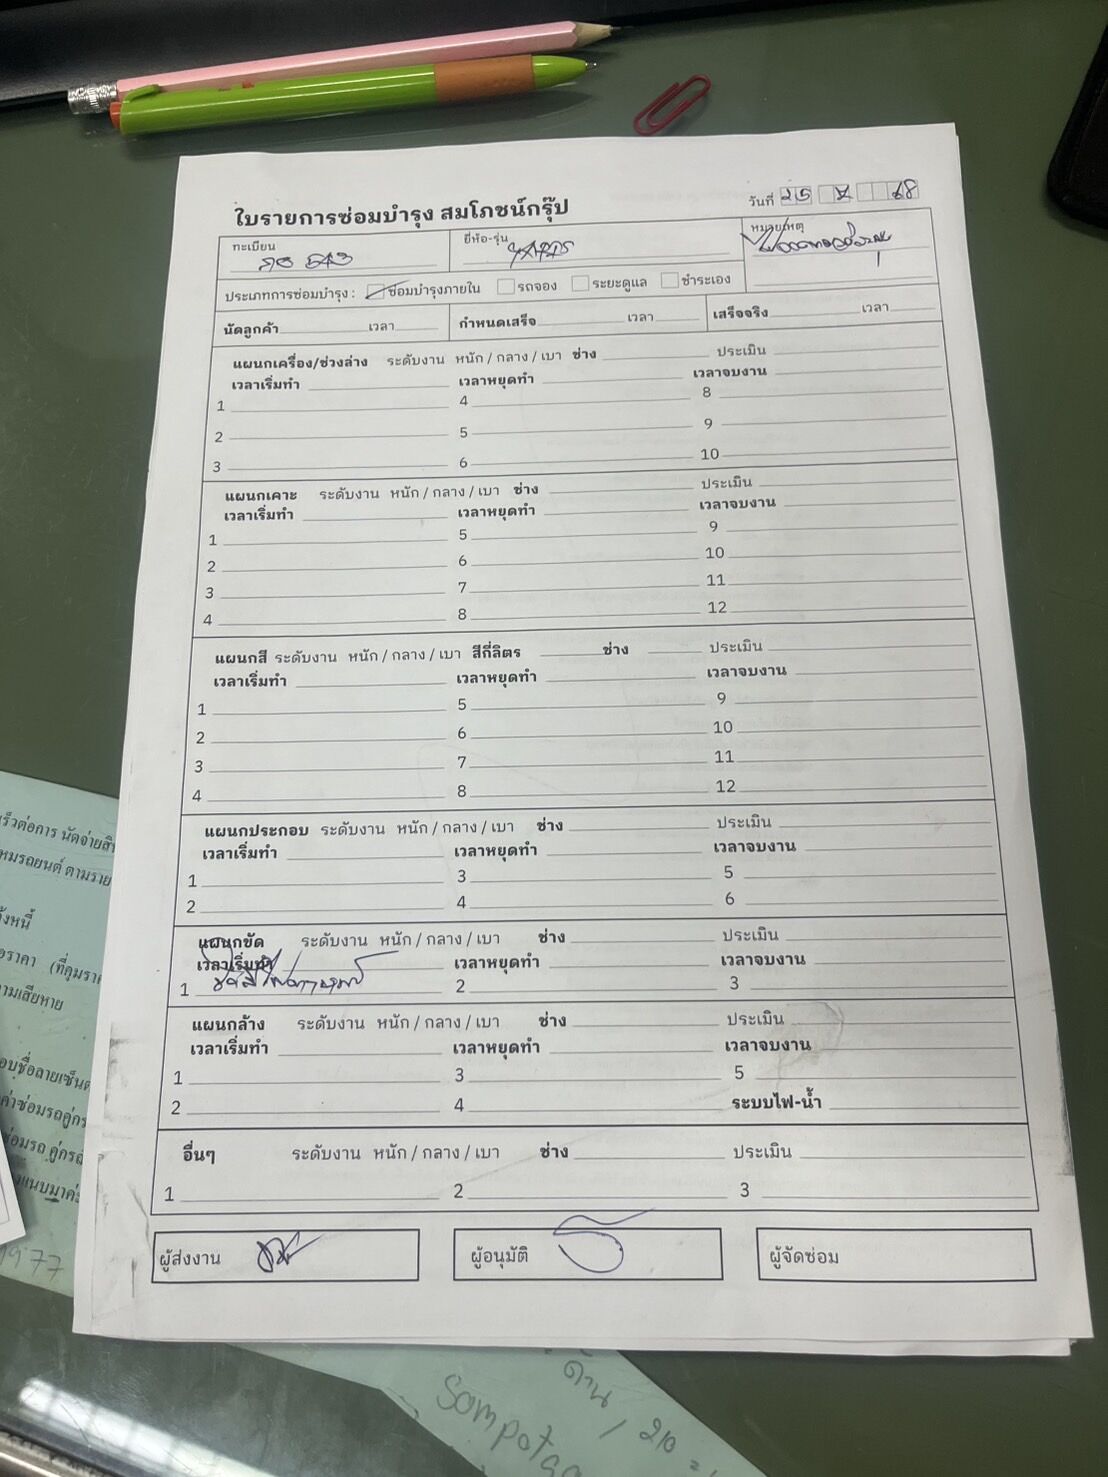 ใบรายการซ่อมบำรุง สมโภชน์กรุ๊ป
วันที่ 25 68
ทะเบียน 543
ยี่ห้อ-รุ่น YARIS
หมายเหตุ
ประเภทการซ่อมบำรุง : ซ่อมบำรุงภายใน รถจอง ระยะดูแล ชำระเอง
นัดลูกค้า เวลา กำหนดเสร็จ เวลา เสร็จจริง เวลา
แผนกเครื่อง/ช่วงล่าง ระดับงาน หนัก / กลาง / เบา ช่าง ประเมิน
เวลาเริ่มทำ เวลาหยุดทำ เวลาจบงาน
1 4 8
2 5 9
3 6 10
แผนกเคาะ ระดับงาน หนัก / กลาง / เบา ช่าง ประเมิน
เวลาเริ่มทำ เวลาหยุดทำ เวลาจบงาน
1 5 9
2 6 10
3 7 11
4 8 12
แผนกสี ระดับงาน หนัก / กลาง / เบา สีกี่ลิตร ช่าง ประเมิน
เวลาเริ่มทำ เวลาหยุดทำ เวลาจบงาน
1 5 9
2 6 10
3 7 11
4 8 12
แผนกประกอบ ระดับงาน หนัก / กลาง / เบา ช่าง ประเมิน
เวลาเริ่มทำ เวลาหยุดทำ เวลาจบงาน
1 3 5
2 4 6
แผนกขัด ระดับงาน หนัก / กลาง / เบา ช่าง ประเมิน
เวลาเริ่มทำ เวลาหยุดทำ เวลาจบงาน
1 2 3
แผนกล้าง ระดับงาน หนัก / กลาง / เบา ช่าง ประเมิน
เวลาเริ่มทำ เวลาหยุดทำ เวลาจบงาน
1 3 5
2 4 ระบบไฟ-น้ำ
อื่นๆ ระดับงาน หนัก / กลาง / เบา ช่าง ประเมิน
1 2 3
ผู้ส่งงาน
ผู้อนุมัติ
ผู้จัดซ่อม
ร็วต่อการ นัดจ่ายสิ
หมรถยนต์ ตามราย
ั้งหนี้
อราคา (ที่คุมราค
ามเสียหาย
อบชื่อลายเซ็นต
ค่าซ่อมรถคู่กร
ซ่อมรถ คู่กรณ
งแนบมาค่ะ
1977
ด้าน / 210
Sompotgg